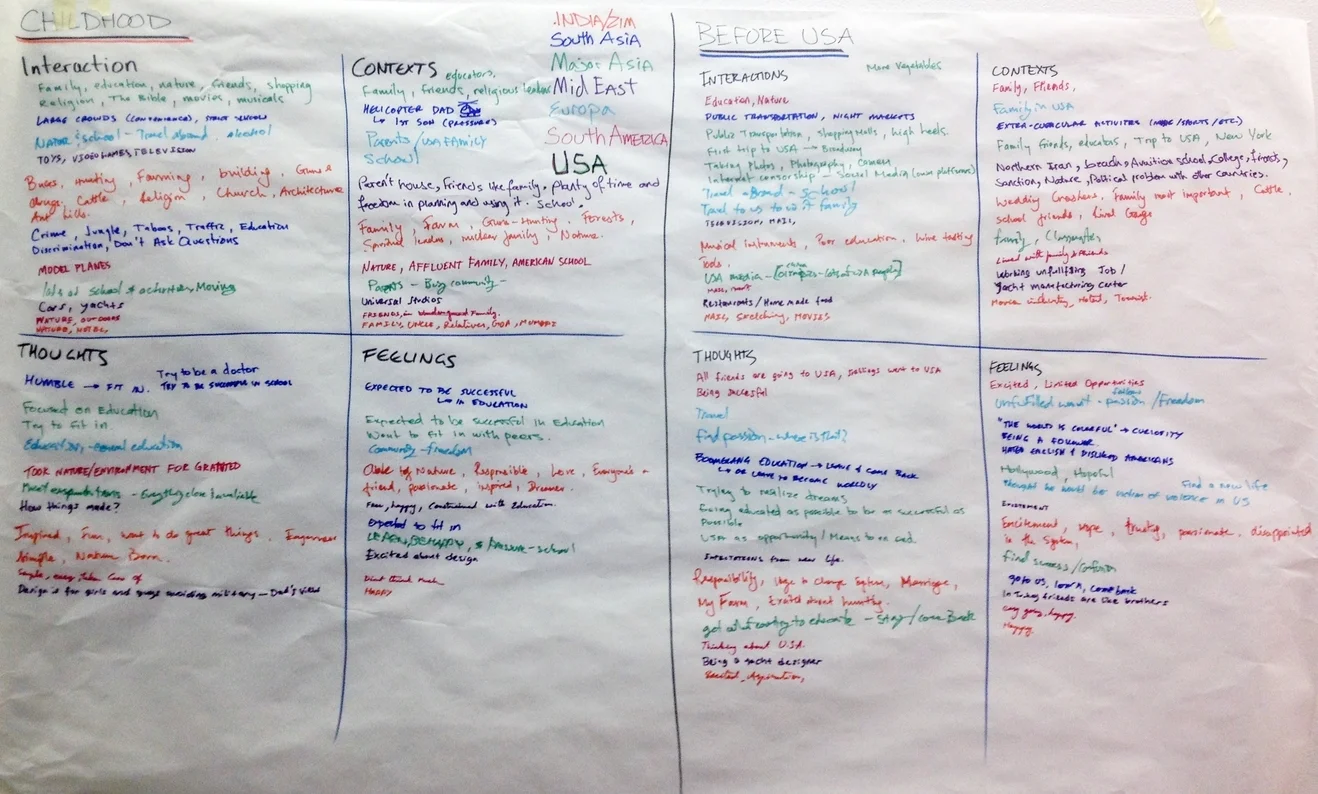 CHILDHOOD
Interaction
Family, education, nature, friends, shopping
Religion, The Bible, movies, musicals
LARGE CROWDS (CONVENIENCE), STRICT SCHOOL
Nature & school - Travel abroad alcohol
TOYS, VIDEO GAMES, TELEVISION
Buses, Hunting, Farming, building, Guns &
drugs, Cattle, Religion, Church, Architecture
Ant hills.
Crime, Jungle, Taboos, Traffic, Education
Discrimination, Don't Ask Questions
MODEL PLANES
lots of school & activities, Moving
Cars, yachts
NATURE, OUTDOORS
NATURE, HOTEL,
CONTEXTS
educators,
Family, friends, religious leaders
HELICOPTER DAD
↳ 1ST SON (PRESSURE)
Parents / USA FAMILY
School
Parent house, Friends like family. Plenty of time and
freedom in planning and using it. School.
Family, Farm, Guns-Hunting, Forests,
Spiritual leaders, nuclear family, Nature.
NATURE, AFFLUENT FAMILY, AMERICAN SCHOOL
Parents - Busy community -
Universal Studios
FRIENDS, Family.
FAMILY, UNCLE, Relatives, GOA, MUMBAI
INDIA/ZIM
South Asia
Major Asia
Mid East
Europa
South AMERICA
USA
THOUGHTS
Try to be a doctor
HUMBLE → FIT IN. TRY TO BE SUCCESSFUL IN SCHOOL
Focused on Education
Try to fit in.
Education, equal education
TOOK NATURE/ENVIRONMENT FOR GRANTED
Meet expectations - Everything close invaluable
How things made?
Inspired, Fun, want to do great things, Engineer
Simple, Nature Born.
Simple, easy, Take Care of
Design is for girls and guys avoiding military - Dad's view
FEELINGS
EXPECTED TO BE SUCCESSFUL
↳ IN EDUCATION
Expected to be successful in Education
Want to fit in with peers.
Community - freedom
Nature, Responsible, Love, Everyone's a
friend, passionate, inspired, Dreamer.
Fun, happy, Constrained with Education.
Expected to fit in
LEARN, school
Excited about design
Didn't think much
HAPPY
BEFORE USA
INTERACTIONS
More Vegetables
Education, Nature
PUBLIC TRANSPORTATION, NIGHT MARKETS
Public Transportation, shopping malls, high heels.
First trip to USA → Broadway
Taking Photos, Photography, Camera
Internet censorship → Social Media (own platforms)
Travel - Abroad - school
Travel to US to visit family
TELEVISION, MALL,
Musical instruments, Poor education, Wine tasting
Tools.
USA media - [olympics - lots of USA supply]
Restaurants / Home made food
MALL, Sketching, MOVIES
CONTEXTS
Family, Friends,
Family in USA
EXTRA-CURICULAR ACTIVITIES (MUSIC/SPORTS/ETC)
Family friends, educators, Trip to USA, New York
Northern Iran, beach, Aviation school, College, friends,
Sanction, Nature, Political problem with other countries.
Wedding Crashers, Family most important, Cattle,
school friends, Rival Gangs
family, Classmates
Lived with family & Friends
Working unfulfilling Job /
Yacht manufacturing center
Movie industry, Hotel, Tourist.
THOUGHTS
All friends are going to USA, siblings went to USA
Being succesful
Travel
Find passion - where is that?
BOOMERANG EDUCATION → LEAVE & COME BACK
↳ OR LEAVE TO BECOME WORLDLY
Trying to realize dreams
Being educated as possible to be as successful as
possible.
USA as opportunity / Means to an end.
EXPECTATIONS from new life.
Responsibility, Urge to change System, Marriage,
My Farm, Excited about hunting.
go to country to educate - Stay / Come Back
Thinking about U.S.A.
Being a yacht designer
Excited, Aspiration,
FEELINGS
Excited, Limited Opportunities
Unfulfilled want - passion / Freedom
"THE WORLD IS COLORFUL" → CURIOSITY
BEING A FOLLOWER.
HATED ENGLISH & DISLIKED AMERICANS
Hollywood, Hopeful
Find a new life
Thought he would be victim of violence in US
EXCITEMENT
Excitement, hope, passionate, disappointed
in the System,
Find success /
go to US, learn, come back
In Turkey friends are like brothers
easy going, happy.
Happy.